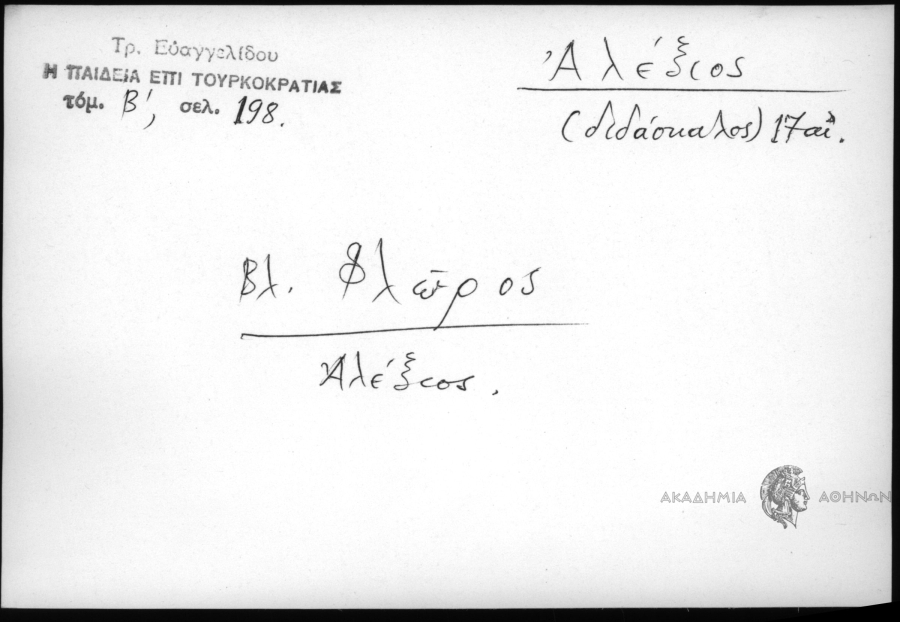 Τρ. Εὐαγγελίδου
Η ΠΑΙΔΕΙΑ ΕΠΙ ΤΟΥΡΚΟΚΡΑΤΙΑΣ
τόμ. Β', σελ. 198.
Ἀλέξιος
(διδάσκαλος) 17 αἰ.
Βλ. Φλῶρος
Ἀλέξιος.
ΑΚΑΔΗΜΙΑ ΑΘΗΝΩΝ